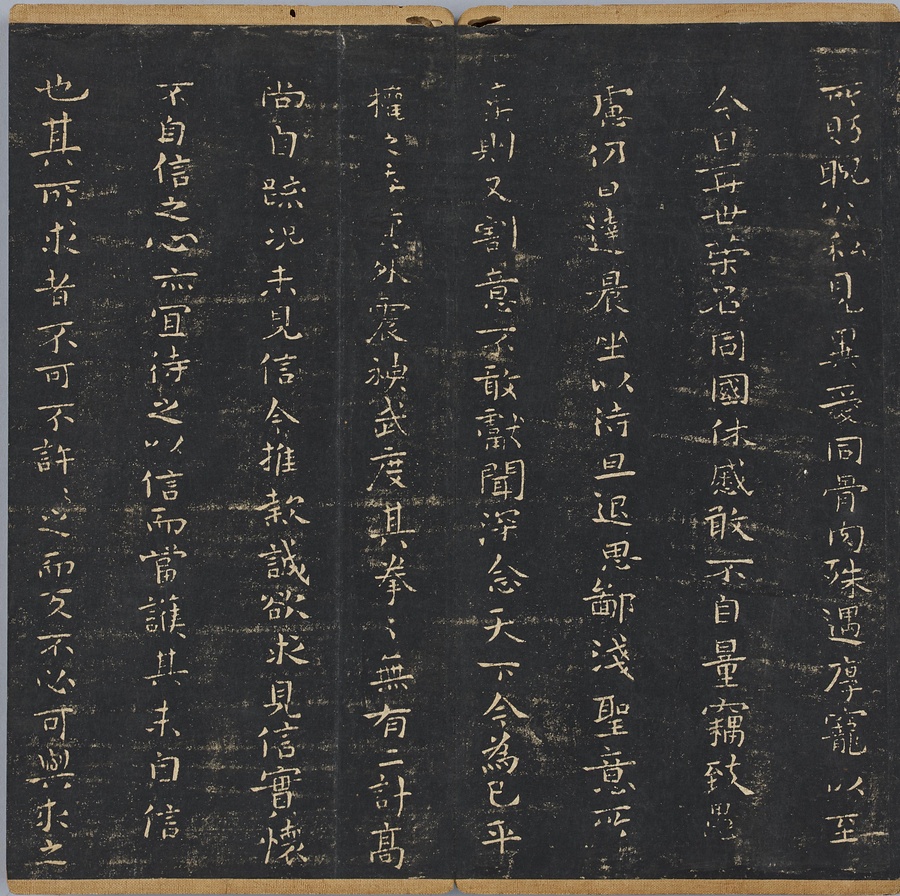 所盻睨公私見異愛同骨肉殊遇厚寵以至
今日再世榮名同國休慼敢不自量竊致愚
慮仍日達晨坐以待旦退思鄙淺聖意所
棄則又割意不敢獻聞深念天下今為已平
權之委質外震神武度其拳〻無有二計高
尚自疏況未見信今推款誠欲求見信實懷
不自信之心亦宜待之以信而當護其未自信
也其所求者不可不許〻之而反不必可與求之